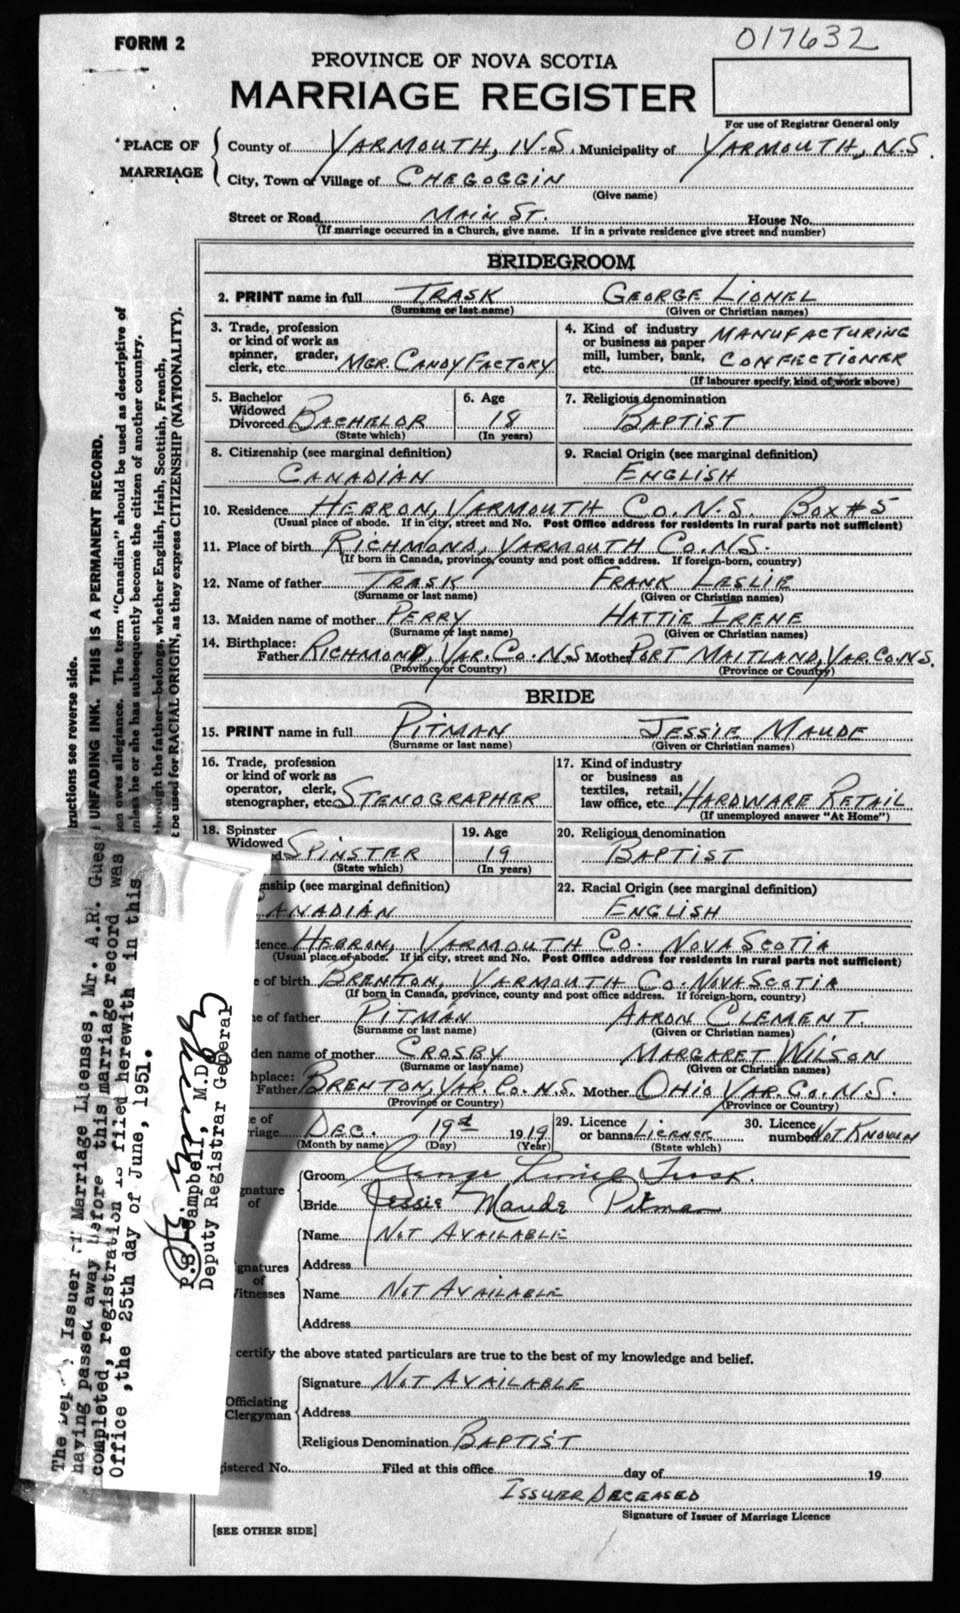 FORM 2
017632
PROVINCE OF NOVA SCOTIA
MARRIAGE REGISTER
For use of Registrar General only
PLACE OF MARRIAGE
County of YARMOUTH, N.S. Municipality of YARMOUTH, N.S.
City, Town or Village of CHEGOGGIN
(Give name)
Street or Road MAIN ST. House No.
(If marriage occurred in a Church, give name. If in a private residence give street and number)
BRIDEGROOM
2. PRINT name in full TRASK GEORGE LIONEL
(Surname or last name) (Given or Christian names)
3. Trade, profession or kind of work as spinner, grader, clerk, etc. MGR. CANDY FACTORY
4. Kind of industry or business as paper mill, lumber, bank, etc. MANUFACTURING CONFECTIONER
(If labourer specify, kind of work above)
5. Bachelor Widowed Divorced BACHELOR
(State which)
6. Age 18
(In years)
7. Religious denomination
BAPTIST
8. Citizenship (see marginal definition)
CANADIAN
9. Racial Origin (see marginal definition)
ENGLISH
10. Residence HEBRON, YARMOUTH CO. N.S. BOX #5
(Usual place of abode. If in city, street and No. Post Office address for residents in rural parts not sufficient)
11. Place of birth RICHMOND, YARMOUTH CO. N.S.
(If born in Canada, province, county and post office address. If foreign-born, country)
12. Name of father TRASK FRANK LESLIE
(Surname or last name) (Given or Christian names)
13. Maiden name of mother PERRY HATTIE IRENE
(Surname or last name) (Given or Christian names)
14. Birthplace: Father RICHMOND, YAR. CO. N.S Mother PORT MAITLAND, YAR. CO. N.S.
(Province or Country) (Province or Country)
BRIDE
15. PRINT name in full PITMAN JESSIE MAUDE
(Surname or last name) (Given or Christian names)
16. Trade, profession or kind of work as operator, clerk, stenographer, etc. STENOGRAPHER
17. Kind of industry or business as textiles, retail, law office, etc. HARDWARE RETAIL
(If unemployed answer "At Home")
18. Spinster Widowed SPINSTER
(State which)
19. Age 19
(In years)
20. Religious denomination
BAPTIST
nship (see marginal definition)
ANADIAN
22. Racial Origin (see marginal definition)
ENGLISH
dence HEBRON, YARMOUTH CO. NOVA SCOTIA
(Usual place of abode. If in city, street and No. Post Office address for residents in rural parts not sufficient)
e of birth BRENTON, YARMOUTH CO. NOVA SCOTIA
(If born in Canada, province, county and post office address. If foreign-born, country)
e of father PITMAN AARON CLEMENT.
(Surname or last name) (Given or Christian names)
den name of mother CROSBY MARGARET WILSON
(Surname or last name) (Given or Christian names)
hplace: Father BRENTON, YAR. CO. N.S. Mother OHIO YAR. CO. N.S.
(Province or Country) (Province or Country)
e of rriage DEC. 19th 1919
(Month by name) (Day) (Year)
29. Licence or banns LICENCE
(State which)
30. Licence number NOT KNOWN
gnature of
Groom George Lionel Trask.
Bride Jessie Maude Pitman
gnatures of itnesses
Name NOT AVAILABLE
Address
Name NOT AVAILABLE
Address
certify the above stated particulars are true to the best of my knowledge and belief.
Officiating Clergyman
Signature NOT AVAILABLE
Address
Religious Denomination BAPTIST
istered No. Filed at this office day of 19
ISSUER DECEASED
Signature of Issuer of Marriage Licence
[SEE OTHER SIDE]
ructions see reverse side.
UNFADING INK. THIS IS A PERMANENT RECORD.
son owes allegiance. The term "Canadian" should be used as descriptive of
nless he or she has subsequently become the citizen of another country.
through the father—belongs, whether English, Irish, Scottish, French,
be used for RACIAL ORIGIN, as they express CITIZENSHIP (NATIONALITY).
The Issuer of Marriage Licenses, Mr. A.R. Gues
having passed away before this marriage record was
completed, registration is filed herewith in this
Office, the 25th day of June, 1951.
P.S. Campbell, M.D.
Deputy Registrar General